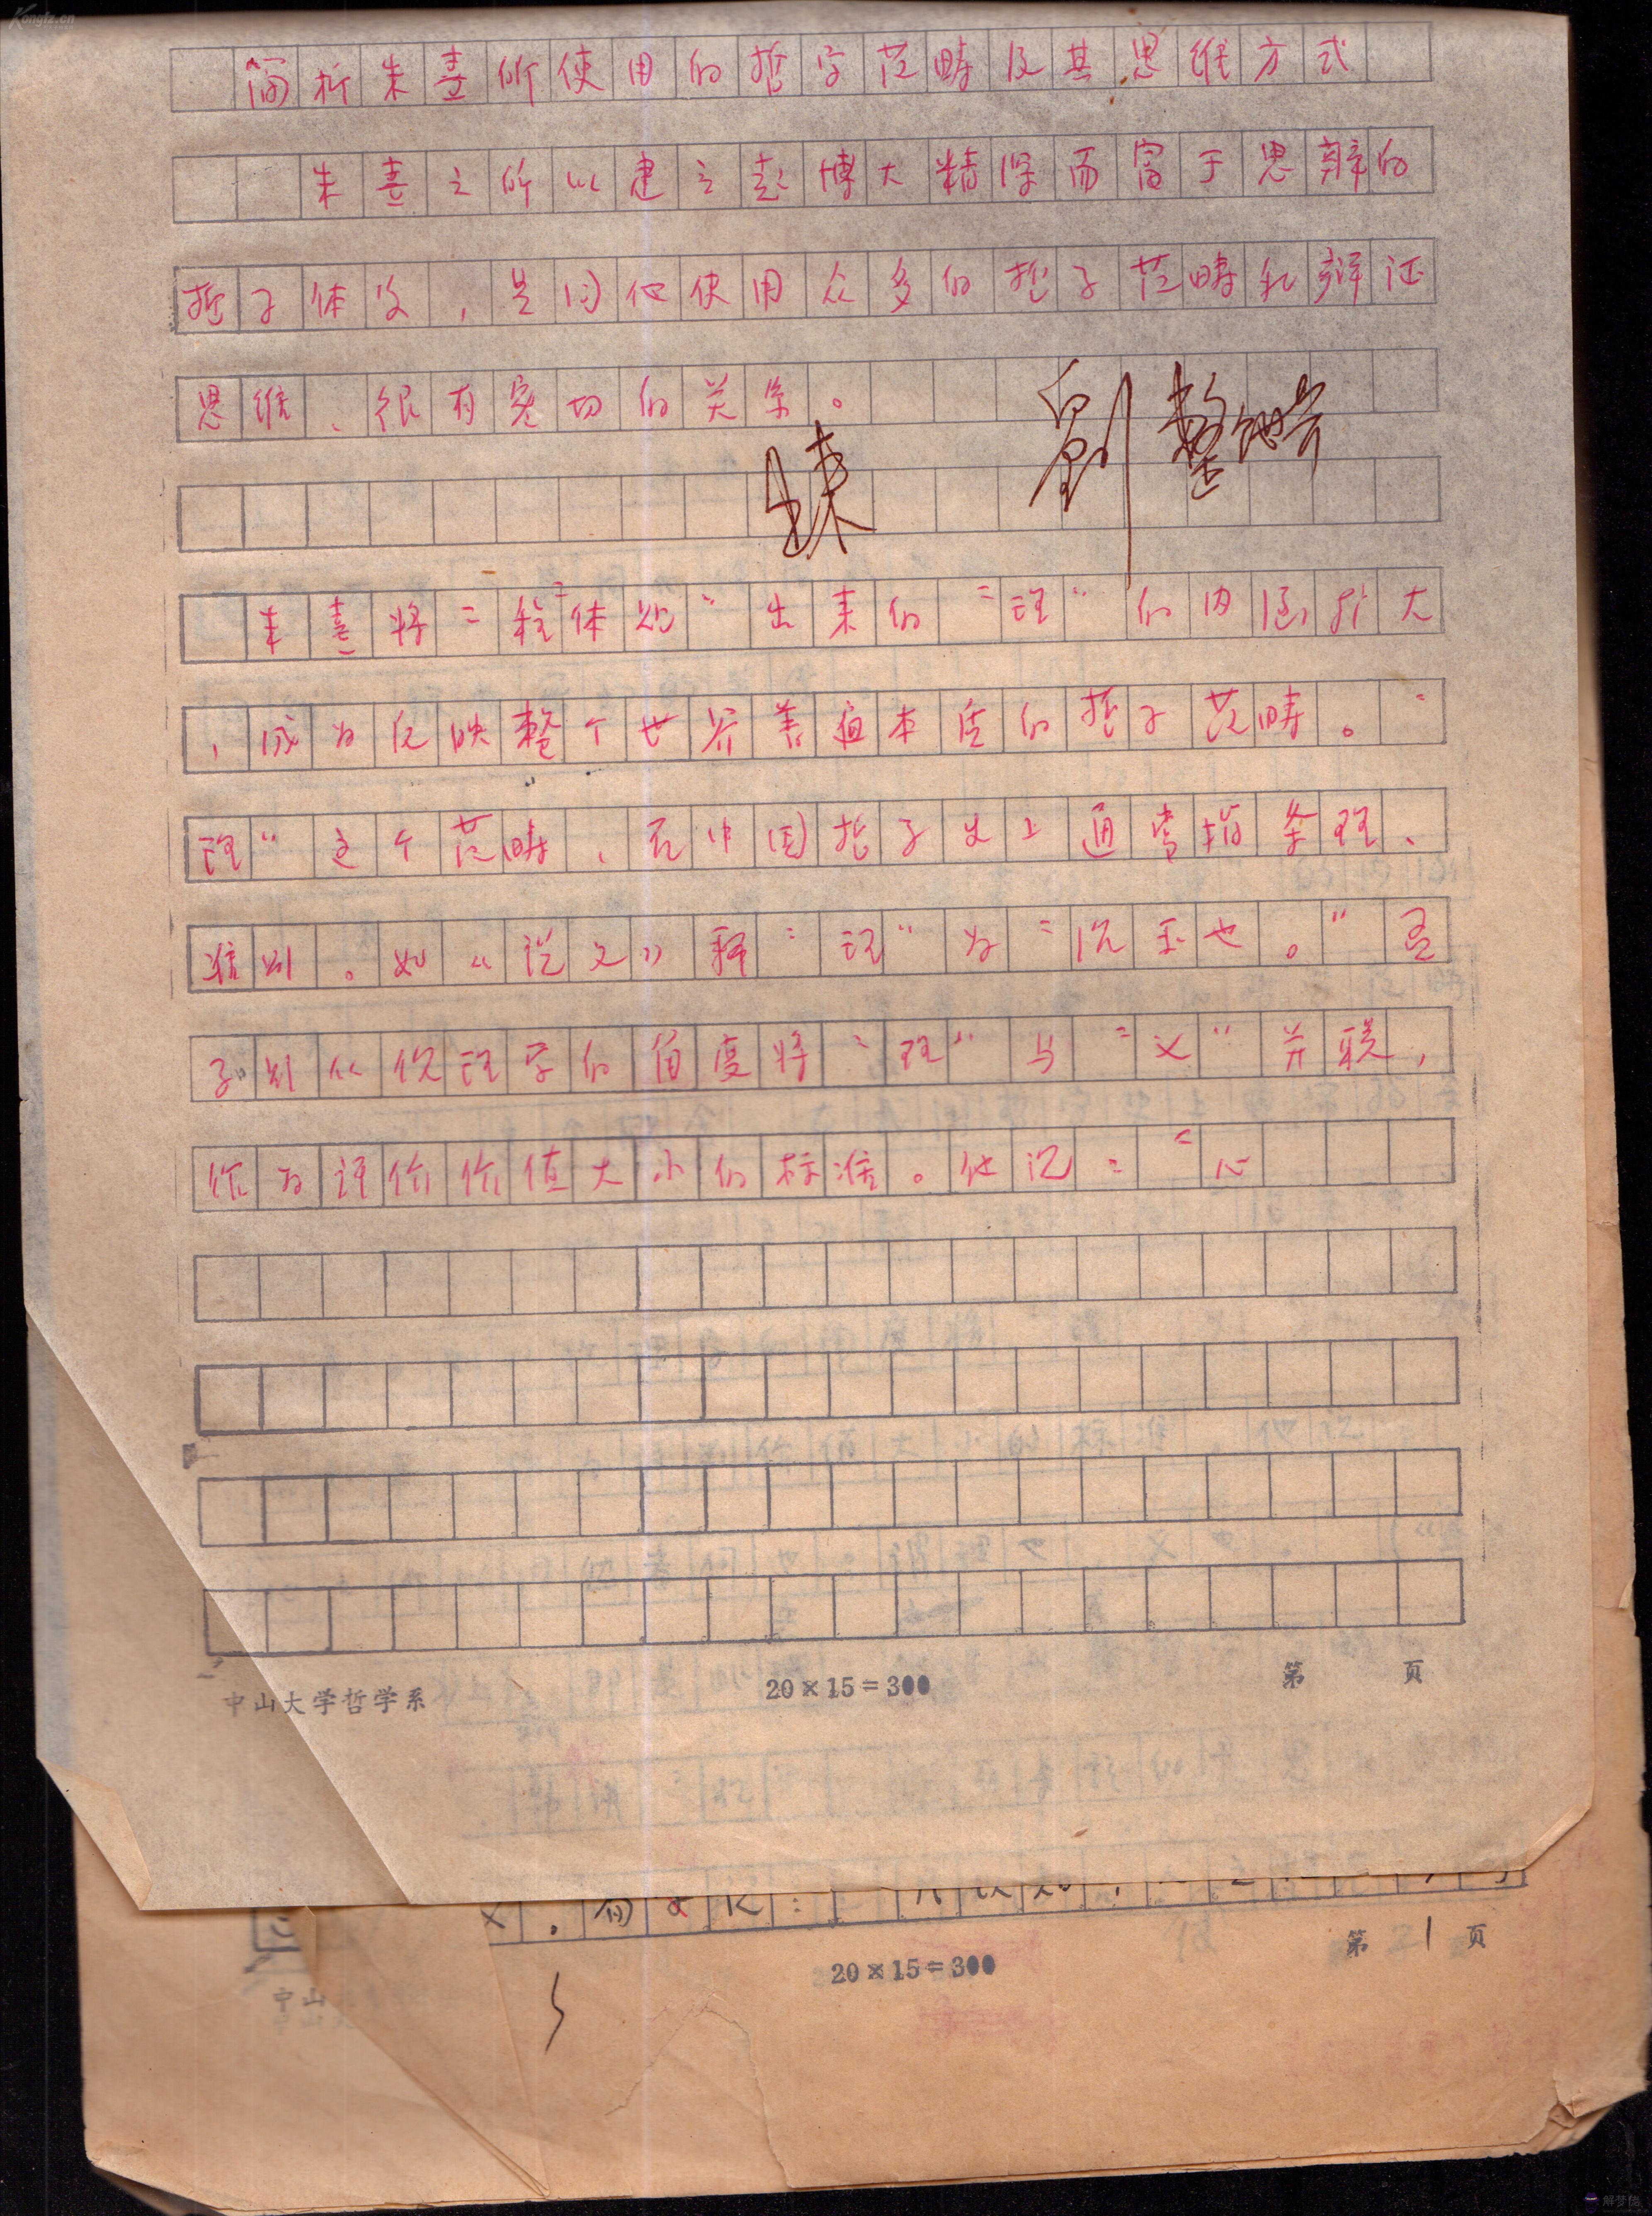 Kongfz.cn
简析朱熹所使用的哲学范畴及其思维方式
朱熹之所以建立起博大精深而富于思辩的
哲学体系，是同他使用众多的哲学范畴和辩证
思维、很有密切的关系。
朱熹将二程“体贴”出来的“理”的内涵扩大
，成为反映整个世界普遍本质的哲学范畴。“
理”这个范畴，在中国哲学史上通常指条理、
准则。如《说文》释“理”为“治玉也。”孟
子则从伦理学的角度将“理”与“义”并联，
作为评价价值大小的标准。他说：“心
中山大学哲学系 20×15=300 第 页
20×15=300 第 21 页
中山